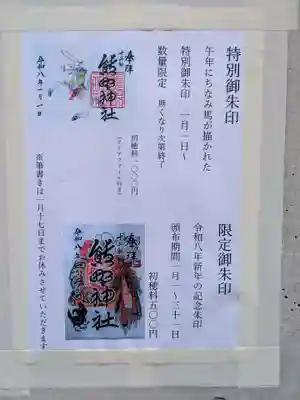 特別御朱印
午年にちなみ馬が描かれた
特別御朱印　一月一日～
数量限定　無くなり次第終了
初穂料一〇〇〇円
（クリアファイル付き）
奉拝
熊野神社
令和八年一月一日
限定御朱印
令和八年新年の記念朱印
頒布期間一月一～三十一日
初穂料五〇〇円
奉拝
熊野神社
令和八年
※筆書きは一月十七日までお休みさせていただきます